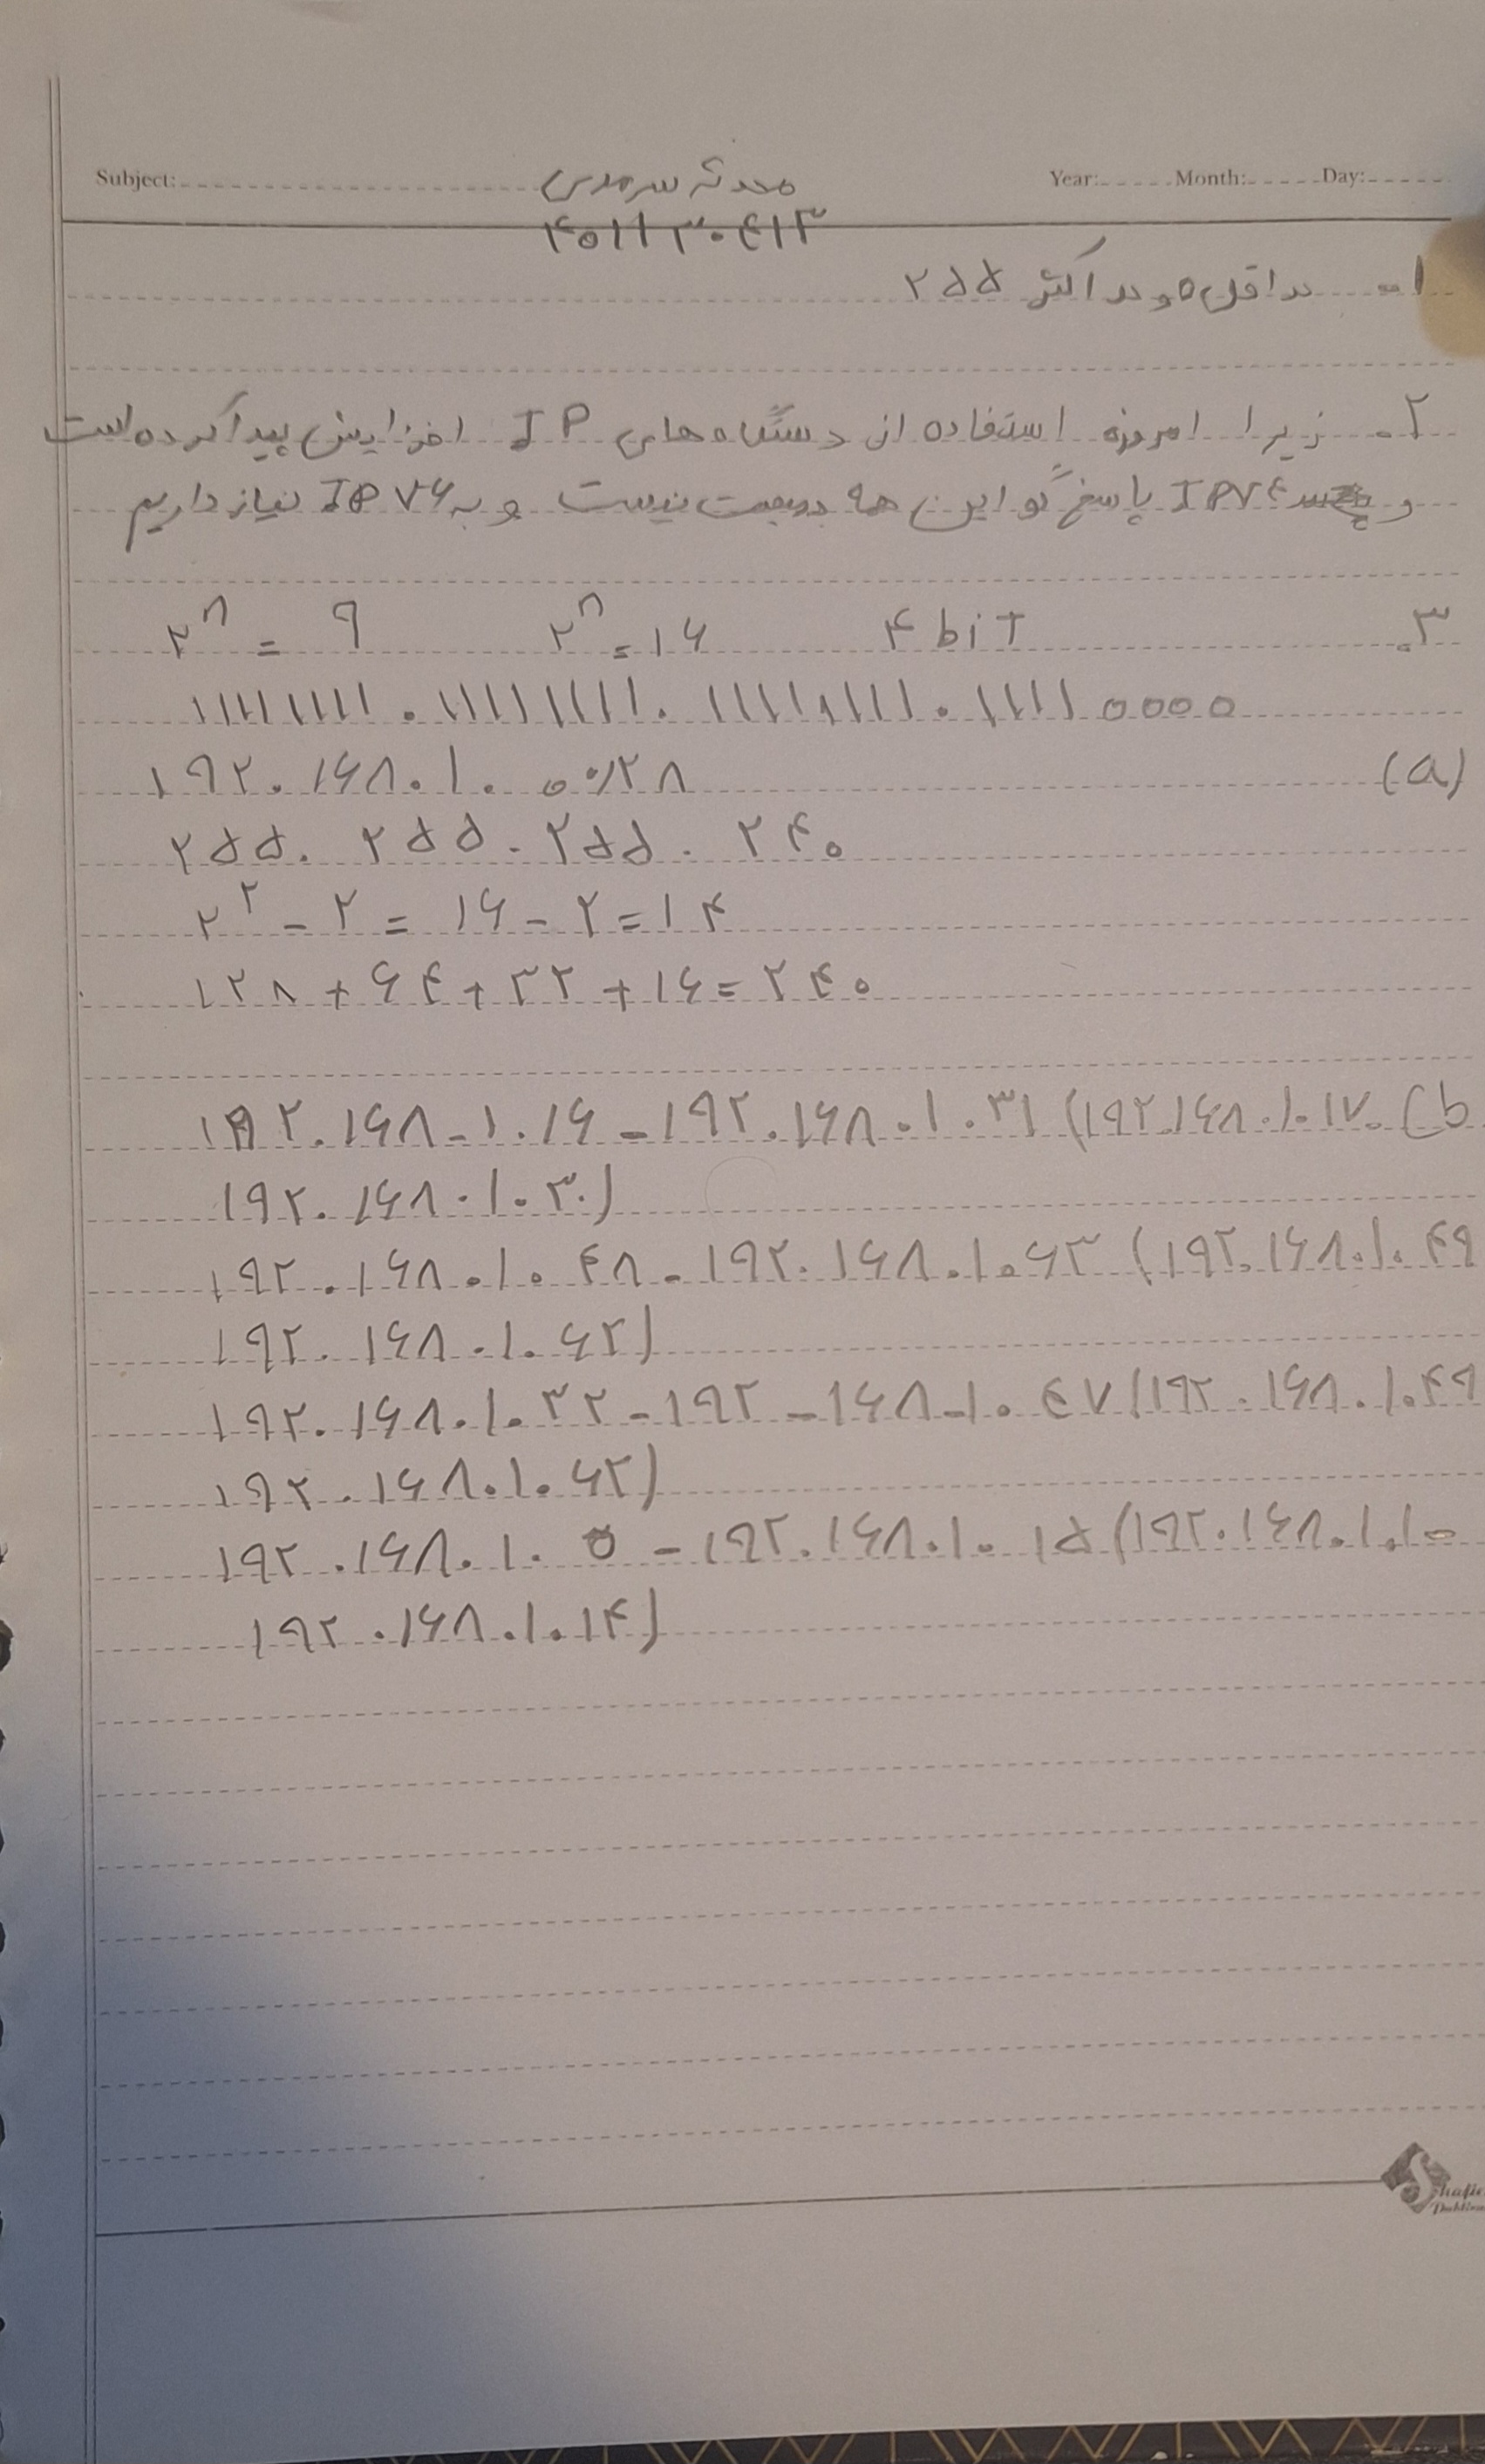 Subject: محدثه سرمدی Year: Month: Day:
۴۰۱۱۳۰۴۱۳
۱- حداقل ۰ و حداکثر ۲۵۵
۲- زیرا امروزه استفاده از دستگاه های IP افزایش پیدا کرده است
و IPV۴ پاسخ گو این همه جمعیت نیست و به IPV۶ نیاز داریم
۳. ۲^n = ۹ ۲^n = ۱۶ ۴ bit
۱۱۱۱۱۱۱۱.۱۱۱۱۱۱۱۱.۱۱۱۱۱۱۱۱.۱۱۱۱۰۰۰۰
(a) ۱۹۲.۱۶۸.۱.۰/۲۸
۲۵۵.۲۵۵.۲۵۵.۲۴۰
۲^۲ - ۲ = ۱۶ - ۲ = ۱۴
۱۲۸ + ۶۴ + ۳۲ + ۱۶ = ۲۴۰
(b ۱۹۲.۱۶۸-۱.۱۶ - ۱۹۲.۱۶۸.۱.۳۱ (۱۹۲.۱۶۸.۱.۱۷.
۱۹۲.۱۶۸.۱.۳۰)
۱۹۲.۱۶۸.۱.۴۸ - ۱۹۲.۱۶۸.۱.۶۳ (۱۹۲.۱۶۸.۱.۴۹
۱۹۲.۱۶۸.۱.۶۲)
۱۹۲.۱۶۸.۱.۳۲ - ۱۹۲-۱۶۸-۱.۴۷ (۱۹۲.۱۶۸.۱.۴۹
۱۹۲.۱۶۸.۱.۶۲)
۱۹۲.۱۶۸.۱.۰ - ۱۹۲.۱۶۸.۱.۱۵ (۱۹۲.۱۶۸.۱.۱۰
۱۹۲.۱۶۸.۱.۱۴)